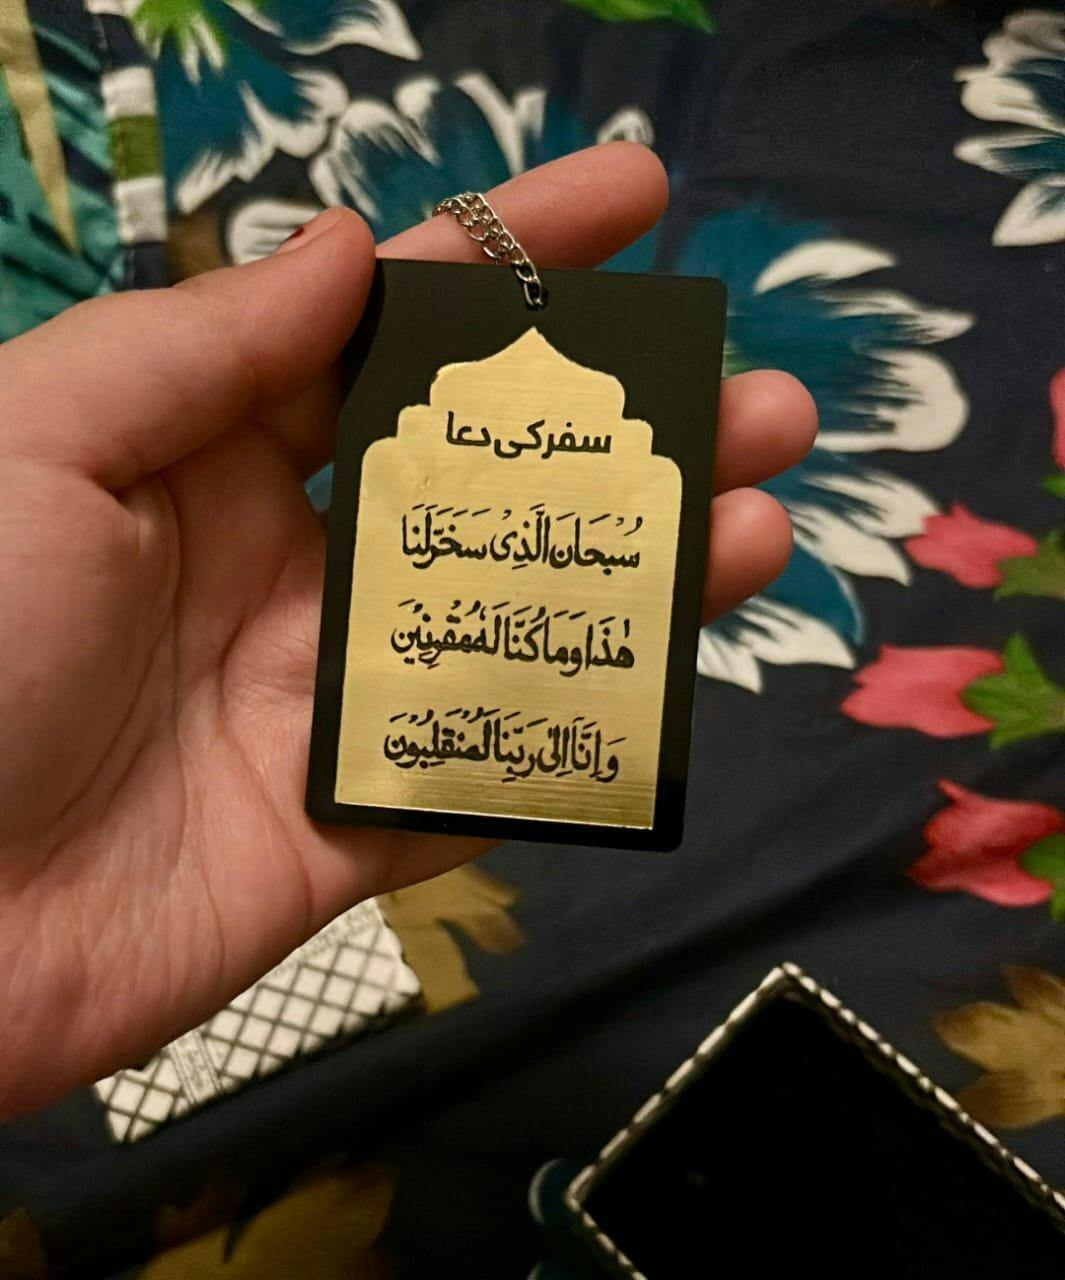 سفر کی دعا
سُبْحَانَ الَّذِیْ سَخَّرَ لَنَا
هٰذَا وَمَا کُنَّا لَهٗ مُقْرِنِیْنَ
وَاِنَّآ اِلٰی رَبِّنَا لَمُنْقَلِبُوْنَ